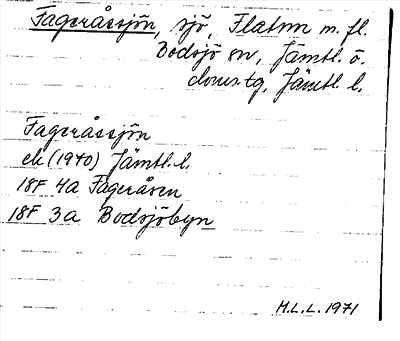 Fageråssjön, sjö, Flatnor m. fl.
Bodsjö sn, Jämtl. ö.
doms.tg, Jämtl. l.
Fageråssjön
ek (1970) Jämtl. l.
18F 4a Fageråsen
18F 3a Bodsjöbyn
H.L.L. 1971